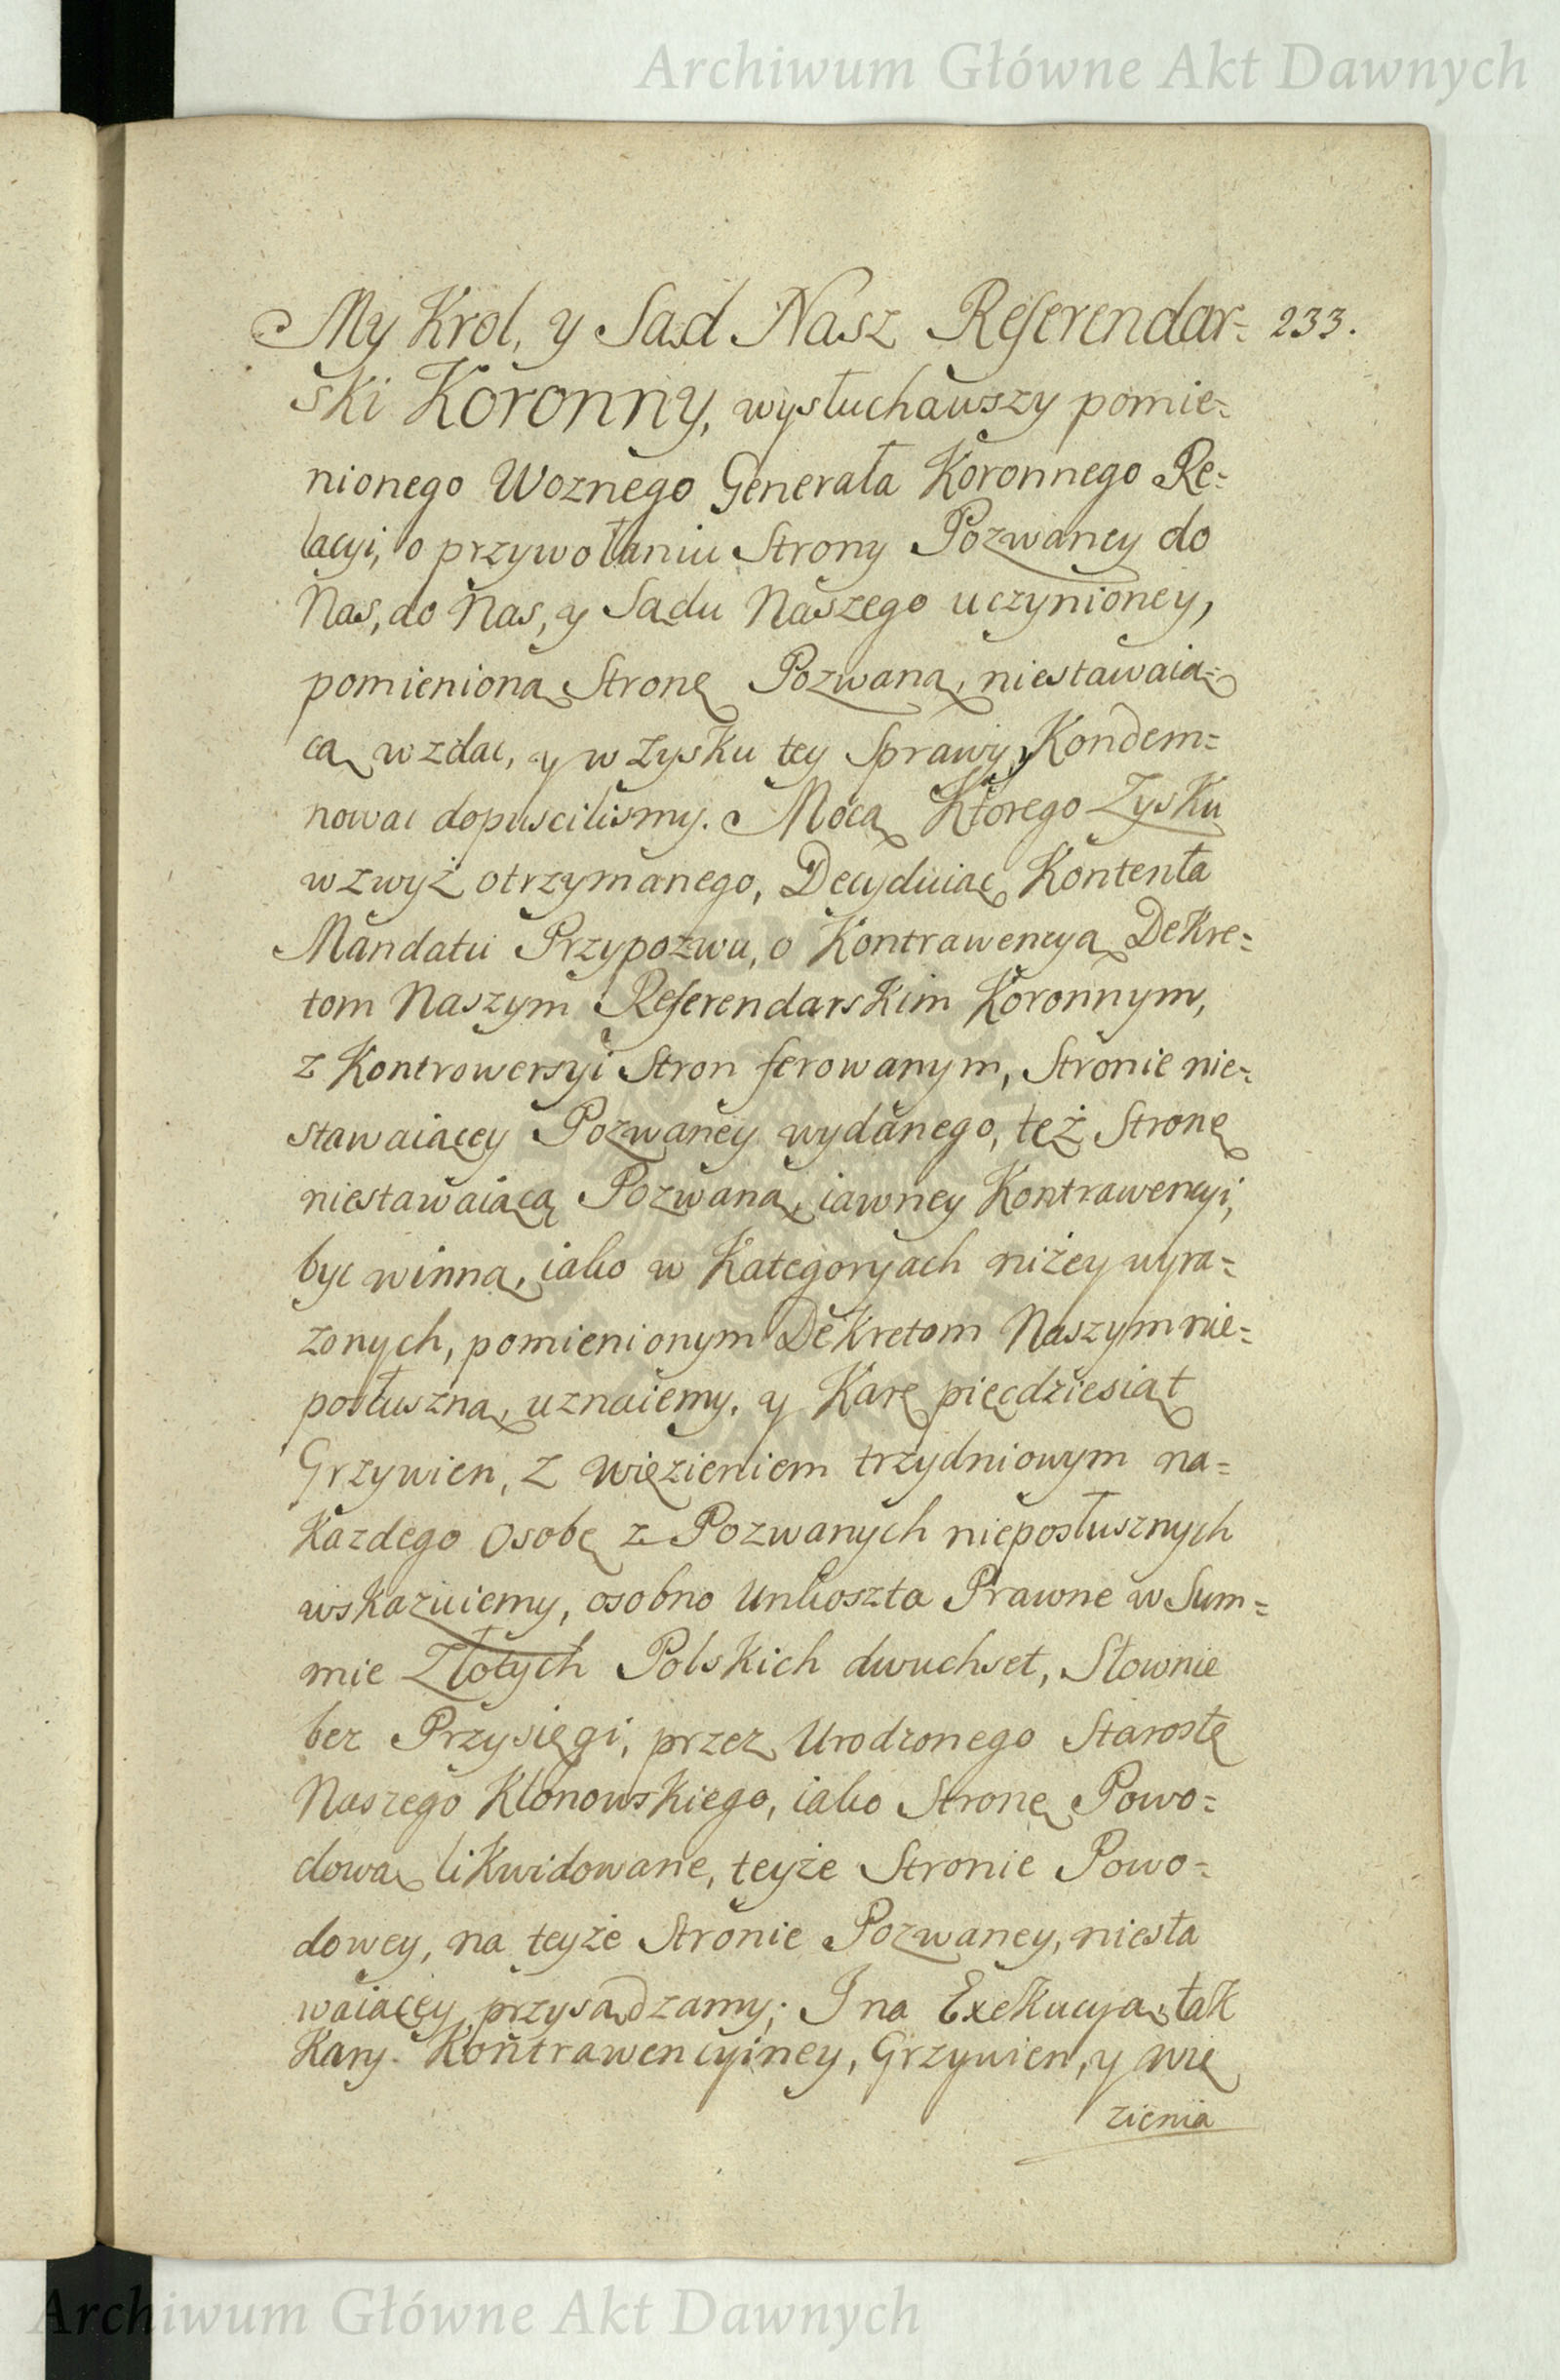 Archiwum Główne Akt Dawnych
My Krol, y Sąd Nasz Referendar= 233.
ski Koronny, wysłuchawszy pomie=
nionego Woznego Generała Koronnego Re=
lacyi, o przywołaniu Strony Pozwaney do
Nas, do Nas, y Sądu Naszego uczynioney,
pomienioną Stronę Pozwaną, niestawaią=
cą wzdac, y w Zysku tey Sprawy Kondem=
nowac dopuscilismy. Mocą Ktorego Zysku
wzwyż otrzymanego, Decyduiąc Kontenta
Mandatu Przypozwu, o Kontrawencyą Dekre=
tom Naszym Referendarskim Koronnym,
z Kontrowersyi Stron ferowanym, Stronie nie=
stawaiącey Pozwaney wydanego, też Stronę
niestawaiącą Pozwaną, iawney Kontrawencyi,
byc winną, iako w Kategoryach niżey wyra=
zonych, pomienionym Dekretom Naszym nie=
posłuszną, uznaiemy, y Karę pięcdziesiąt
Grzywien, z więzieniem trzydniowym na=
Kazdego Osobę z Pozwanych nieposłusznych
wskazuiemy, osobno Unkoszta Prawne w Sum=
mie Złotych Polskich dwuchset, Słownie
bez Przysięgi, przez Urodzonego Starostę
Naszego Klonowskiego, iako Stronę Powo=
dową likwidowane, teyże Stronie Powo=
dowey, na teyże Stronie Pozwaney, niesta
waiącey, przysądzamy; I na Exekucyą, tak
Kary Kontrawencyiney, Grzywien, y wię
zienia
Archiwum Główne Akt Dawnych